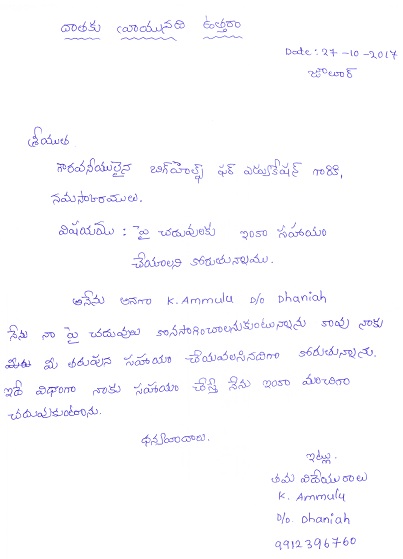 దాతకు వ్రాయునది ఉత్తరం
Date: 27-10-2017
జౌలూర్
శ్రీయుత
గౌరవనీయులైన బిగ్‌హెల్ప్ ఫర్ ఎడ్యుకేషన్ గారికి,
నమస్కారములు.
విషయము : పై చదువులకు ఇంకా సహాయం
చేయాలని కోరుతున్నాము.
అనేను అనగా K. Ammulu D/o Dhaniah
నేను నా పై చదువులు కొనసాగించాలనుకుంటున్నాను కావు నాకు
మీరు మీ తరుపున సహాయం చేయవలసినదిగా కోరుతున్నాను.
ఇదే విధంగా నాకు సహాయం చేస్తే నేను ఇంకా మంచిగా
చదువుకుంటాను.
ధన్యవాదాలు.
ఇట్లు.
తమ విదేయురాలు
K. Ammulu
D/o. Dhaniah
9912396760